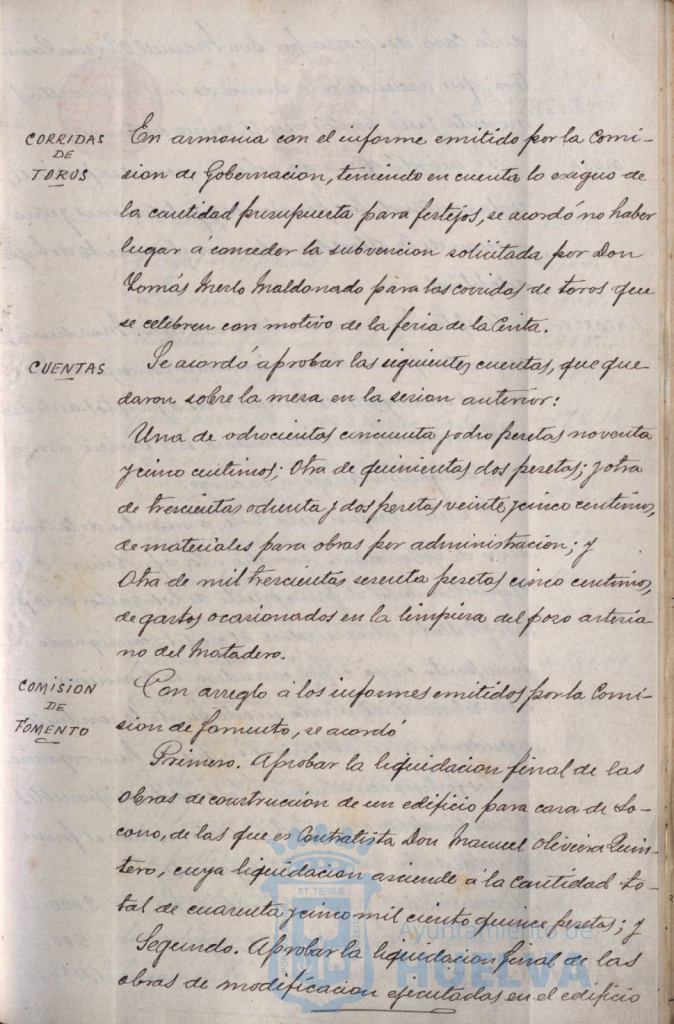 CORRIDAS
DE
TOROS
En armonia con el informe emitido por la Comi-
sion de Gobernacion, teniendo en cuenta lo exiguo de
la cantidad presupuesta para festejos, se acordó no haber
lugar á conceder la subvencion solicitada por Don
Tomás Merlo Maldonado para las corridas de toros que
se celebren con motivo de la feria de la Cinta.
CUENTAS
Se acordó aprobar las siguientes cuentas, que que
daron sobre la mesa en la sesion anterior:
Una de ochocientas cincuenta y ocho pesetas noventa
y cinco centimos; Otra de quinientas dos pesetas; y otra
de trescientas ochenta y dos pesetas veinte y cinco centimos,
de materiales para obras por administracion; y
Otra de mil trescientas sesenta pesetas cinco centimos,
de gastos ocasionados en la limpieza del pozo artesia
no del Matadero.
COMISION
DE
FOMENTO
Con arreglo á los informes emitidos por la Comi-
sion de fomento, se acordó
Primero. Aprobar la liquidacion final de las
obras de construcción de un edificio para casa de So-
corro, de las que es Contratista Don Manuel Oliveira Quin-
tero, cuya liquidacion asciende á la cantidad to-
tal de cuarenta y cinco mil ciento quince pesetas; y
Segundo. Aprobar la liquidacion final de las
obras de modificacion ejecutadas en el edificio
Ayuntamiento de
HUELVA